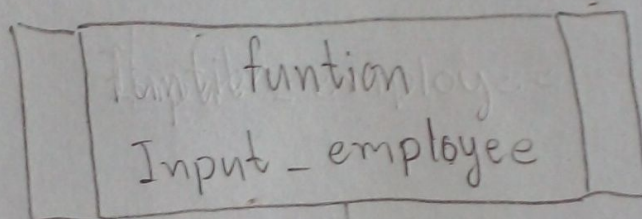 funtion
Input_employee